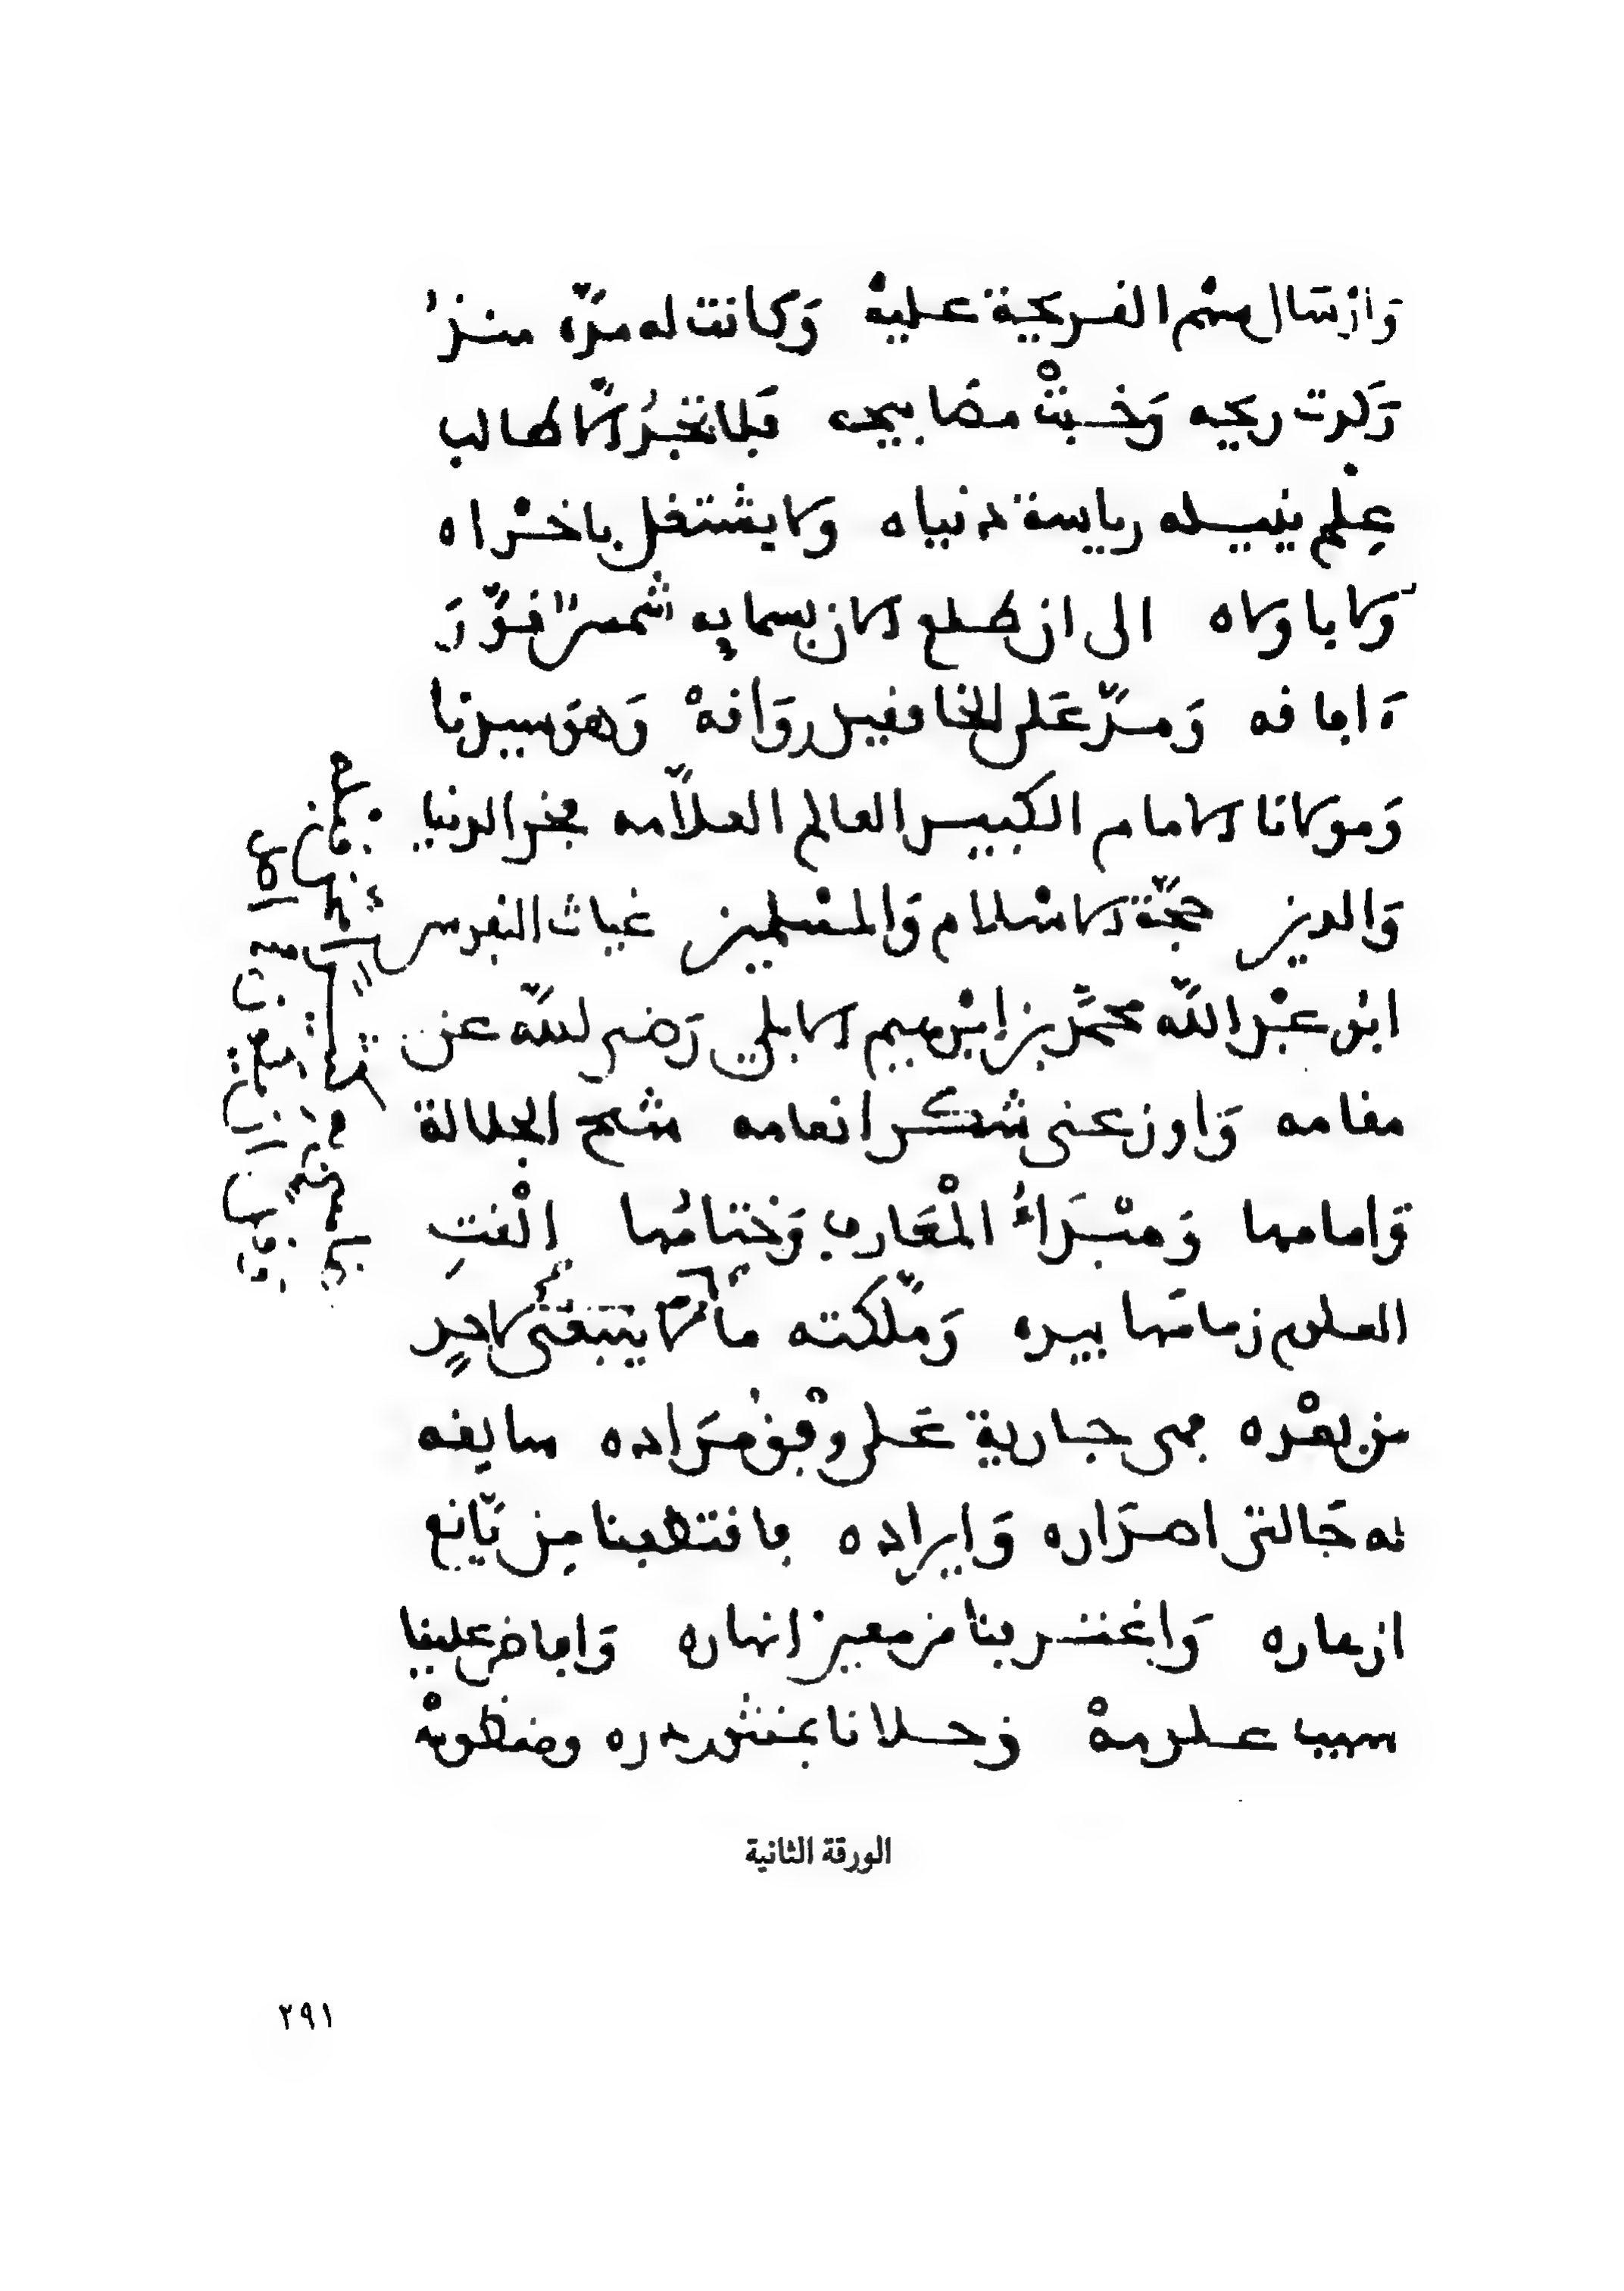 وارسال سهم القريحة عليه وكانت له مدة منذ
ركدت ريحه وخبت مصابيحه فلا تجد إلا طالب
علم ينيله رياسة دنياه ولا يشتغل بأخراه
ولا بأولاه الى ان طلع الآن بسمايه شمس نور
افاقه ومد على الخافقين رواقه وهو سيدنا
ومولانا الامام الكبير العالم العلامه فخر الدنيا
والدين حجة الاسلام والمسلمين غياث النفوس
ابو عبد الله محمد بن ابرهيم الابلي رضي الله عن
مقامه واوزعنى شكر انعامه شيخ الجلالة
وامامها ومبدأ المعارف وختامها القت
العلوم زمامها بيده وملكته ما لا ينبغى لاحد
من بعده فهى جارية على وفق مراده سايغه
له حالتى اصداره وايراده فاقتطفنا من يانع
ازهاره واغترفنا من معين انهاره وافاض علينا
سيب علومه وحلانا بمنثور دره ومنظومه
الورقة الثانية
٢٩١